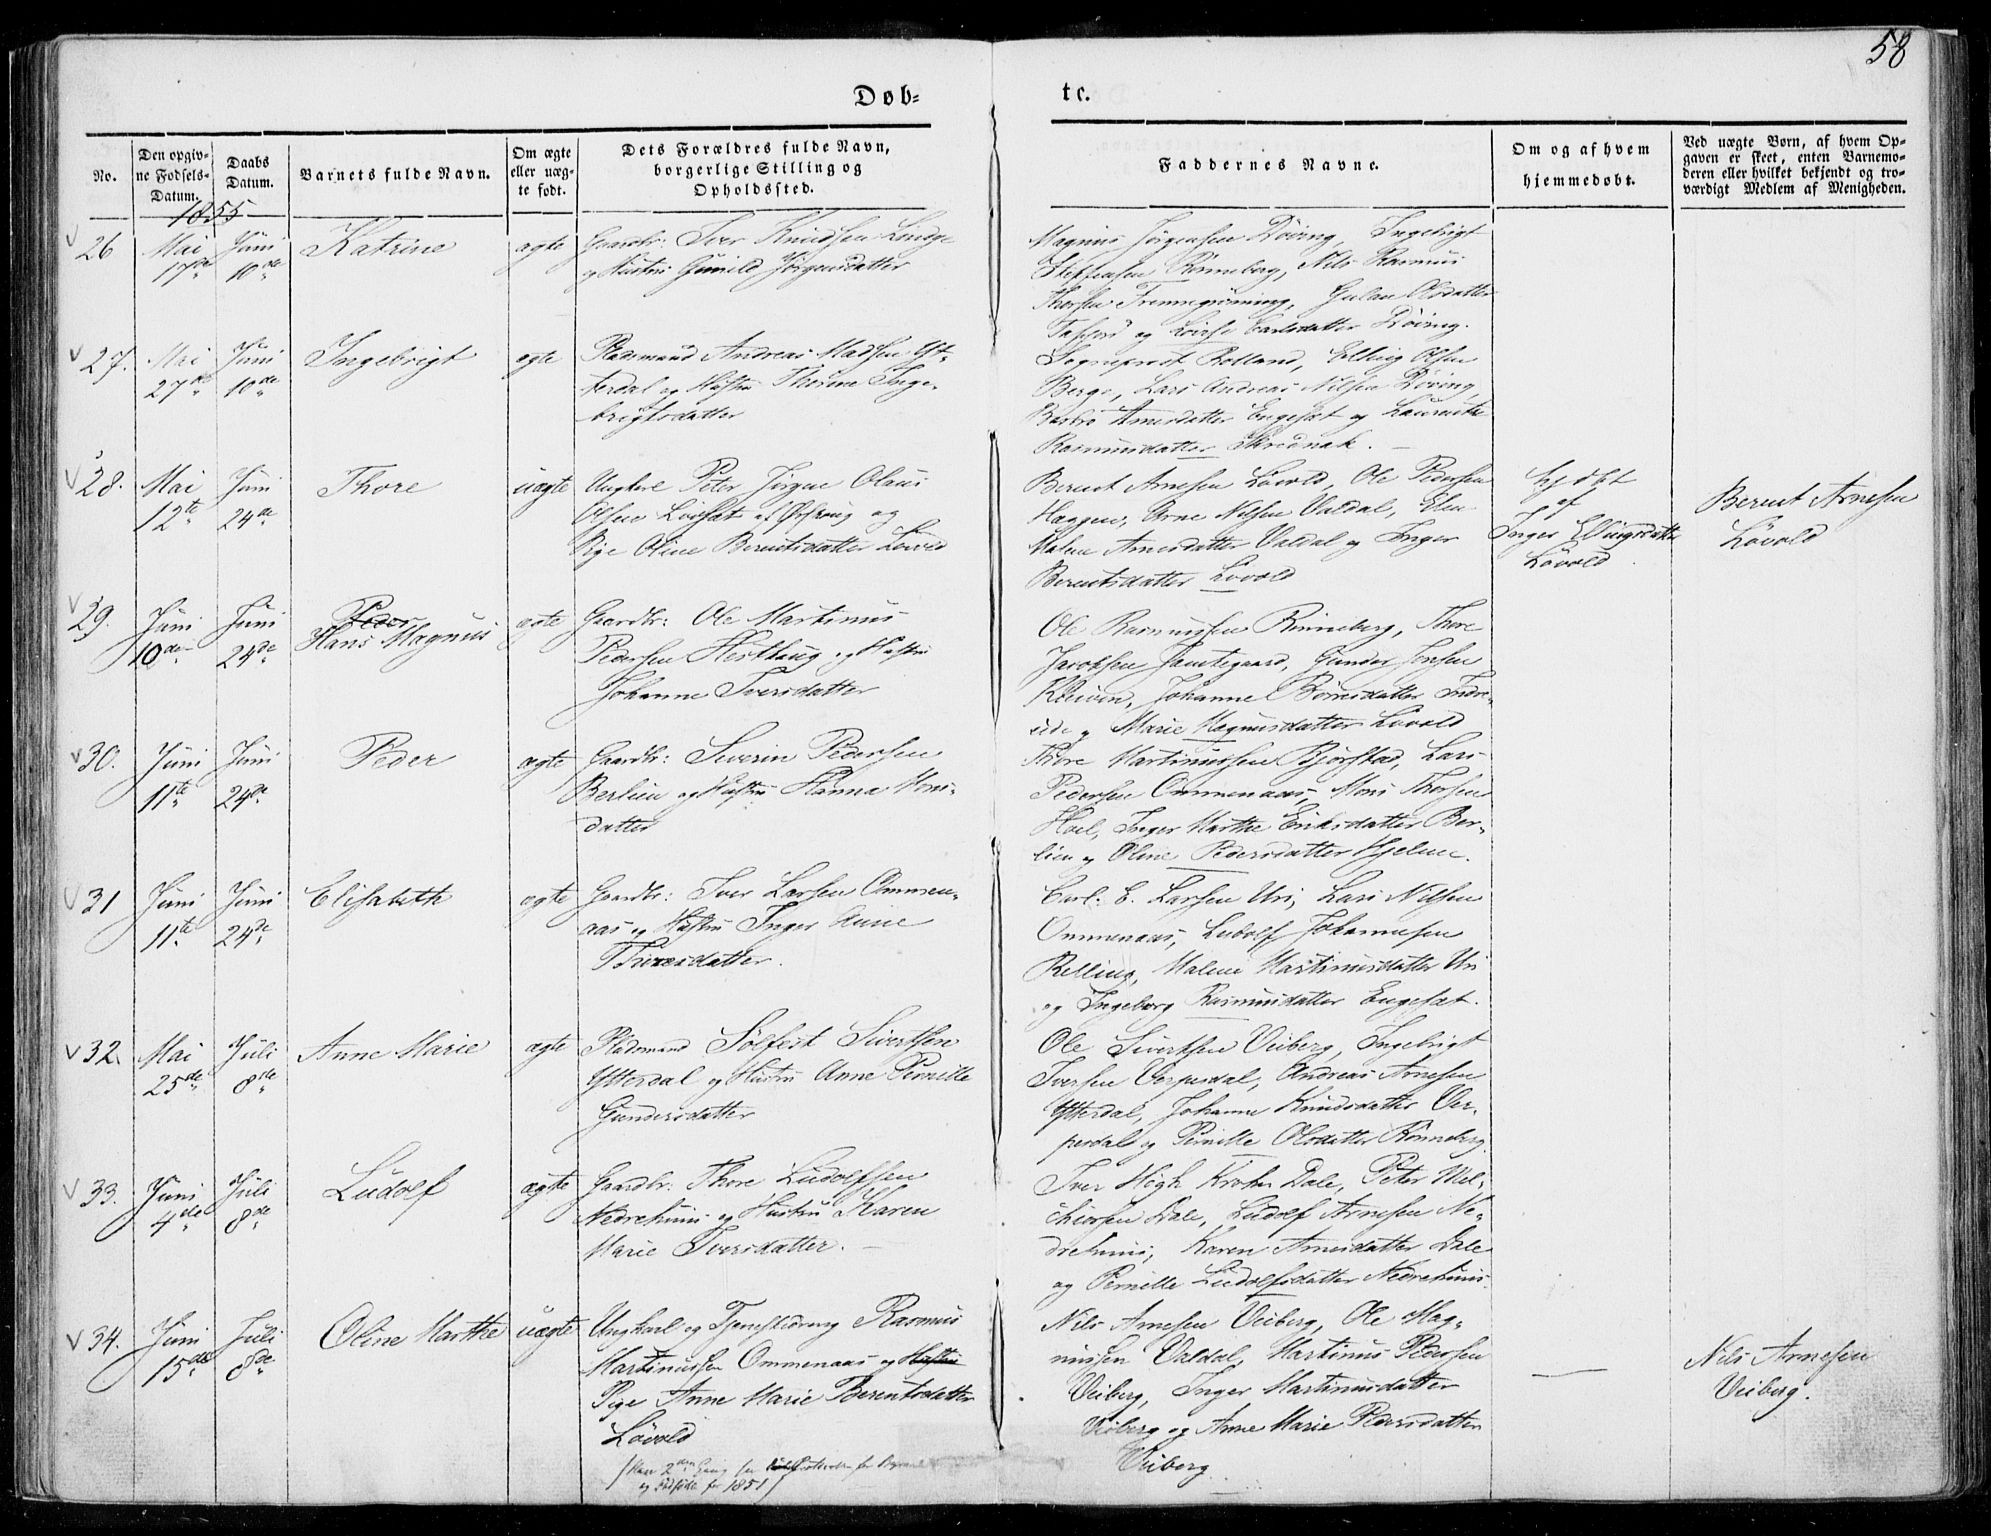 58
Døb=
te.
No.
Den opgiv-
ne Fødsels-
Datum.
Daabs
Datum.
Barnets fulde Navn.
Om ægte
eller uæg-
te født.
Dets Forældres fulde Navn,
borgerlige Stilling og
Opholdssted.
Faddernes Navne.
Om og af hvem
hjemmedøbt.
Ved uægte Børn, af hvem Op-
gaven er skeet, enten Barnemo-
deren eller hvilket bekjendt og tro-
værdigt Medlem af Menigheden.
1855
26
Mai
17de
Juni
10de
Katrine
ægte
Gaardbr: Iver Knudsen Linge
og Hustru Gunild Jørgensdatter
Magnus Jørgensen Døving, Ingebrigt
Steffensen Rønneberg, Nils Rasmus
Thorsen Fremregrøning, Gulau Olsdatter
Tafjord og Lovise Carlsdatter Døving.
27.
Mai
27de
Juni
10de
Ingebrigt
ægte
Pladsmand Andreas Madsen Yt-
terdal og Hustru Thorine Inge-
brigtsdatter
Sogneprest Rolland, Elling Olsen
Berge, Lars Andreas Nilsen Døving,
Barbro Arnesdatter Engeset og Laurentse
Rasmusdatter Skrednak.
28.
Mai
12te
Juni
24de
Thore
uægte
Ungkarl Peter Jørgen Olaus
Olsen Lovset af Ørskoug og
Pige Oline Berentsdatter Løvold
Berent Arnesen Løvold, Ole Pedersen
Hæggen, Arne Nilsen Valdal, Elen
Malene Arnesdatter Valdal og Inger
Berentsdatter Lovold
hjdbt
af
Inger Ellingsdatter
Løvold
Berent Arnesen
Løvold
29.
Juni
10de
Juni
24de
Peder
Hans Magnus
ægte
Gaardbr: Ole Martinus
Pedersen Hesthaug og Hustru
Johanne Iversdatter
Ole Rasmussen Rønneberg, Thore
Jacobsen Jamtegaard, Gunder Jonsen
Kleiven, Johanne Børresdatter Indre-
eide og Marie Magnusdatter Løvold
30.
Juni
11te
Juni
24de
Peder
ægte
Gaardbr: Severin Pedersen
Berlien og Hustru Hanna Mons-
datter
Thore Martinussen Bjørstad, Lars
Pedersen Ommenaas, Mons Thorsen
Hoel, Inger Marthe Eriksdatter Ber-
lien og Oline Pedersdatter Hjelme.
31
Juni
11te
Juni
24de
Elisabeth
ægte
Gaardbr: Iver Larsen Ommen-
aas og Hustru Inger Anne
Thoresdatter.
Carl. E. Larsen Uri, Lars Nilsen
Ommenaas, Ludolf Johannesen
Relling, Malene Martinusdatter Uri
og Ingeborg Rasmusdatter Engeset.
32.
Mai
25de
Juli
8de
Anne Marie
ægte
Pladsmand Sølfest Sivertsen
Ytterdal og Hustru Anne Pernille
Gundersdatter
Ole Sivertsen Veiberg, Ingebrigt
Iversen Verpesdal, Andreas Arnesen
Ytterdal, Johanne Knudsdatter Ver-
pesdal og Pernille Olsdatter Rønneberg.
33.
Juni
4de
Juli
8de
Ludolf
ægte
Gaardbr. Thore Ludolfsen
Nedrehuus og Hustru Karen
Marie Iversdatter.
Iver Høgh Krohn Dale, Peter Mel-
chiorsen Dale, Ludolf Arnesen Ne-
drehuus, Karen Arnesdatter Dale
og Pernille Ludolfsdatter Nedrehuus.
34.
Juni
15de
Juli
8de
Oline Marthe
uægte
Ungkarl og Tjenestedreng Rasmus
Martinussen Ommenaas og Hustru
Pige Anne Marie Berentsdatter
Løvold
Nils Arnesen Veiberg, Ole Mag-
nussen Valdal, Martinus Pedersen
Veiberg, Inger Martinusdatter
Veiberg og Anne Marie Pedersdatter
Veiberg
Nils Arnesen
Veiberg.
2den Gang
for 1851)